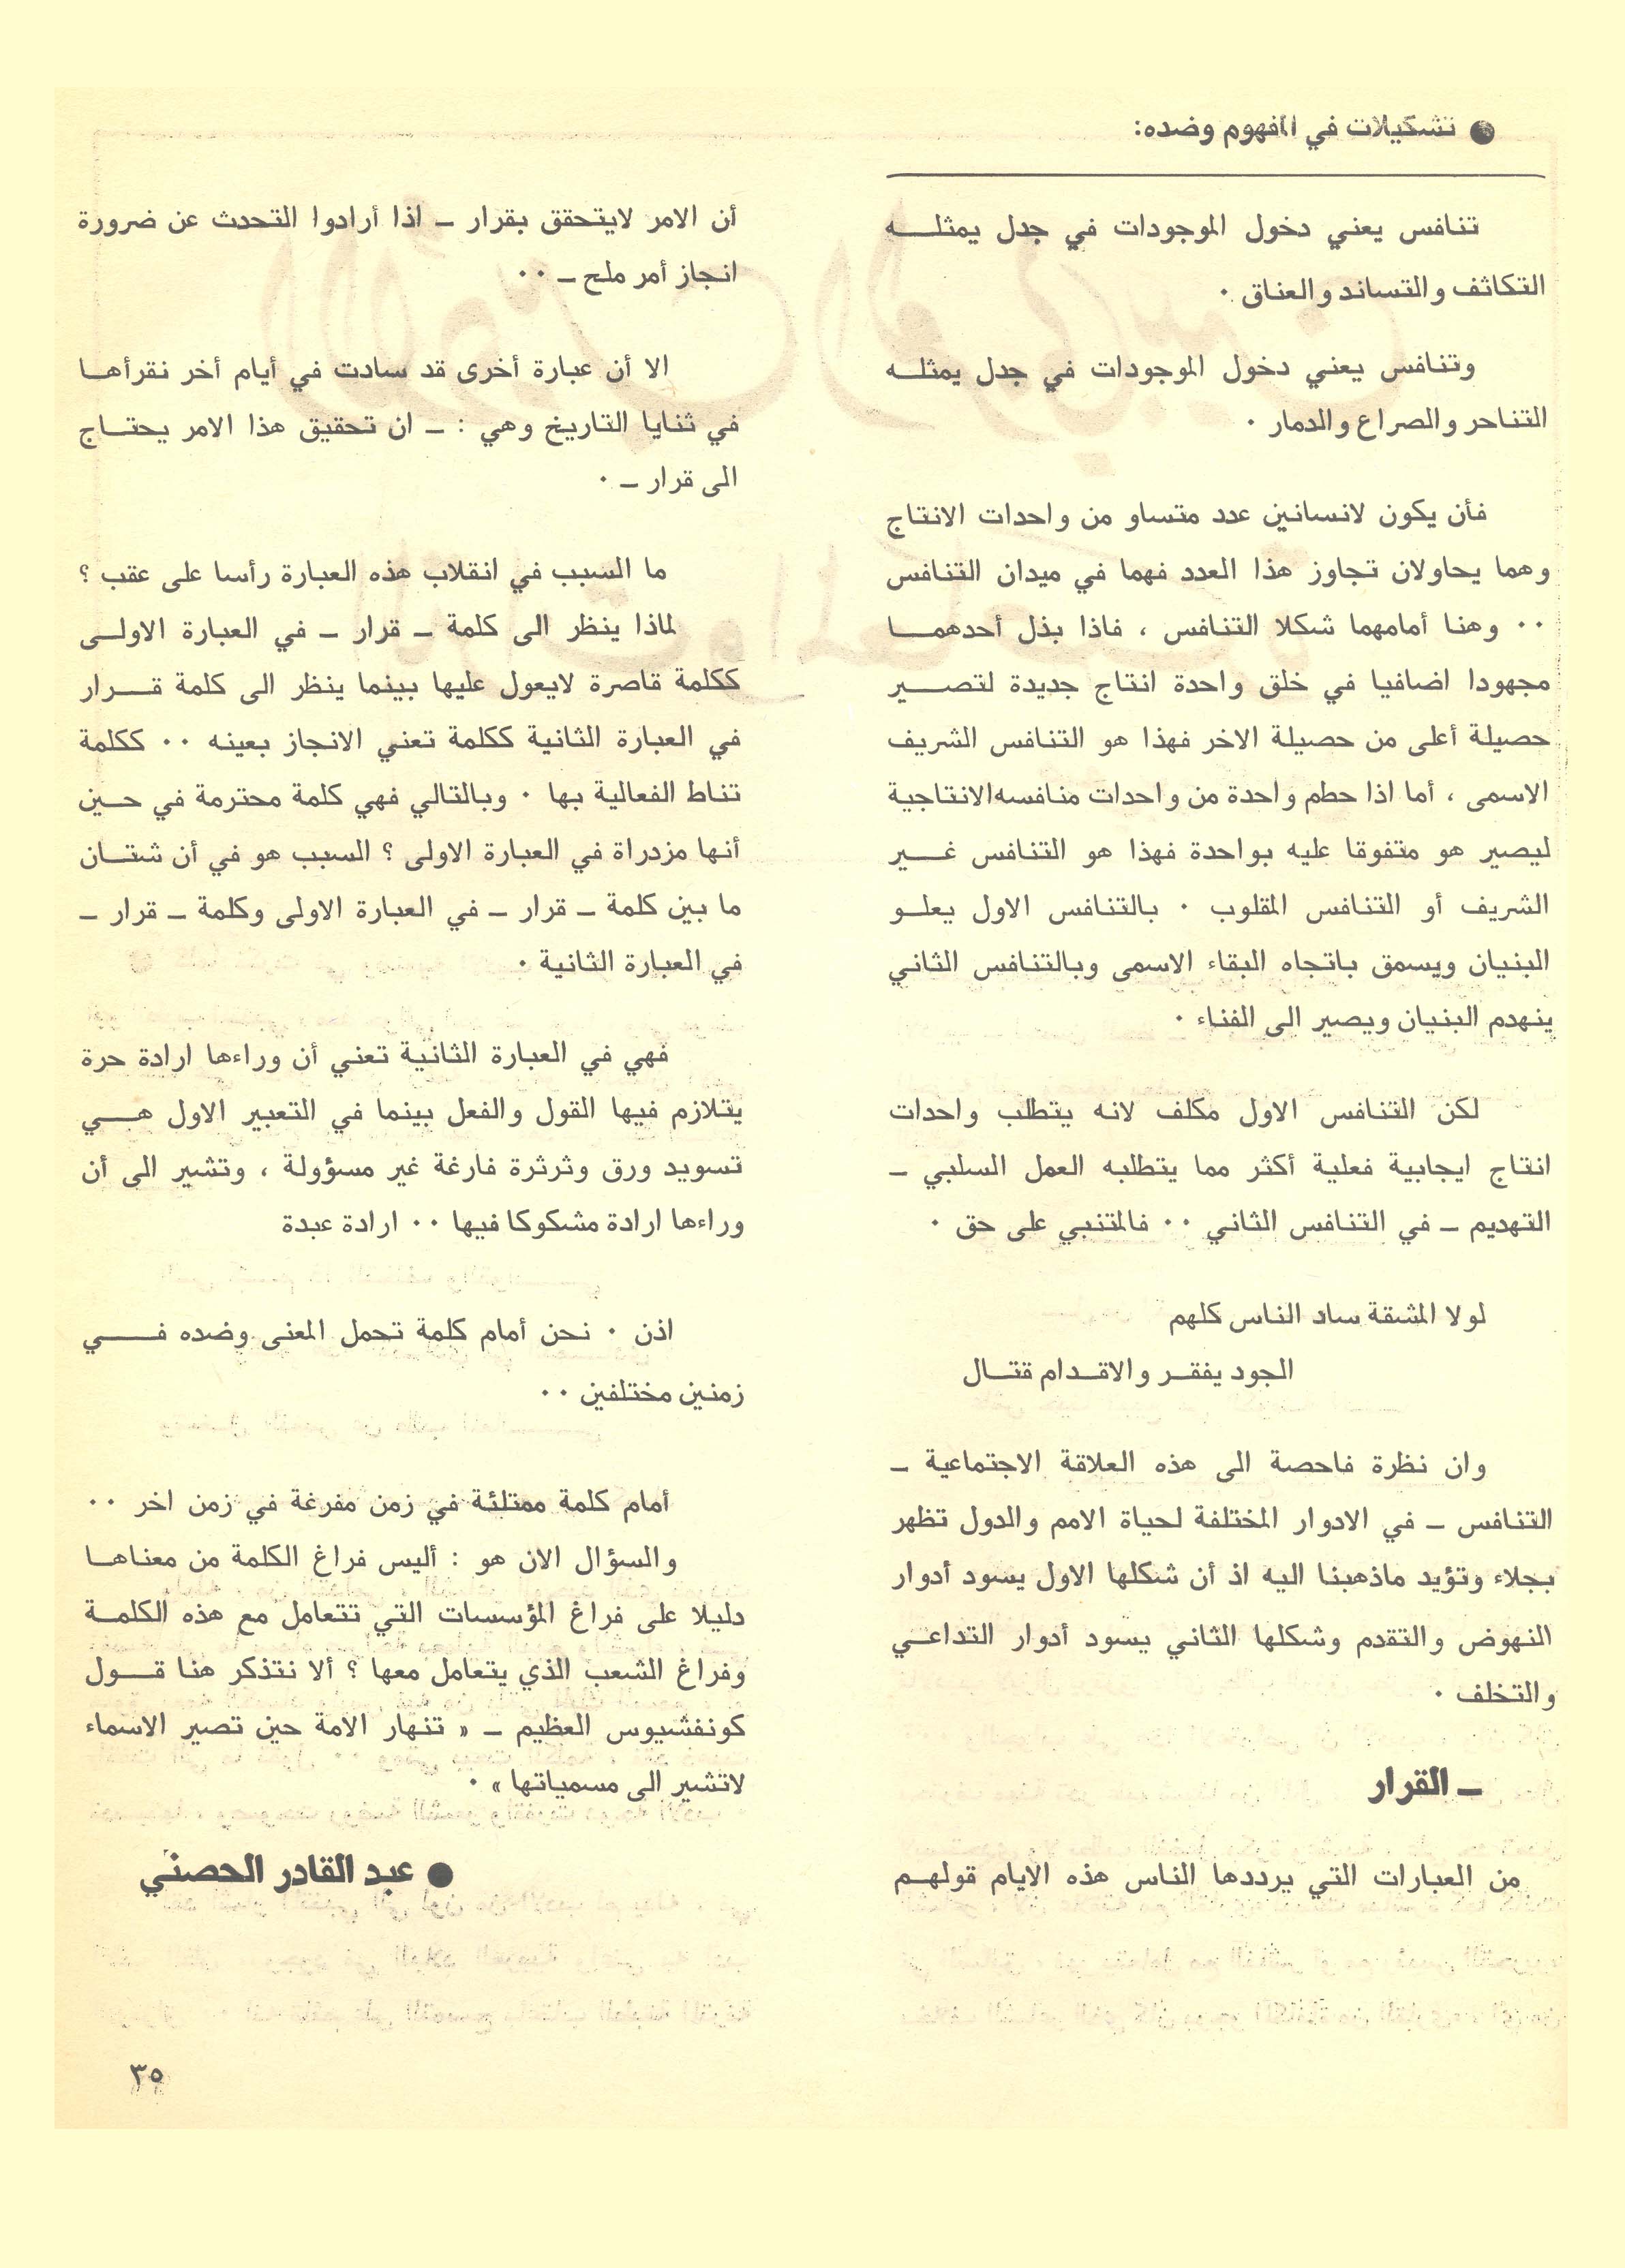 ● تشكيلات في المفهوم وضده:
تنافس يعني دخول الموجودات في جدل يمثله
التكاثف والتساند والعناق .
وتنافس يعني دخول الموجودات في جدل يمثله
التناحر والصراع والدمار .
فأن يكون لانسانين عدد متساو من واحدات الانتاج
وهما يحاولان تجاوز هذا العدد فهما في ميدان التنافس
.. وهنا أمامهما شكلا التنافس ، فاذا بذل أحدهما
مجهودا اضافيا في خلق واحدة انتاج جديدة لتصير
حصيلة أعلى من حصيلة الاخر فهذا هو التنافس الشريف
الاسمى ، أما اذا حطم واحدة من واحدات منافسه الانتاجية
ليصير هو متفوقا عليه بواحدة فهذا هو التنافس غير
الشريف أو التنافس المقلوب . بالتنافس الاول يعلو
البنيان ويسمق باتجاه البقاء الاسمى وبالتنافس الثاني
ينهدم البنيان ويصير الى الفناء .
لكن التنافس الاول مكلف لانه يتطلب واحدات
انتاج ايجابية فعلية أكثر مما يتطلبه العمل السلبي ـ
التهديم ـ في التنافس الثاني .. فالمتنبي على حق .
لولا المشقة ساد الناس كلهم
الجود يفقر والاقدام قتال
وان نظرة فاحصة الى هذه العلاقة الاجتماعية ـ
التنافس ـ في الادوار المختلفة لحياة الامم والدول تظهر
بجلاء وتؤيد ماذهبنا اليه اذ أن شكلها الاول يسود أدوار
النهوض والتقدم وشكلها الثاني يسود أدوار التداعي
والتخلف .
ـ القرار
من العبارات التي يرددها الناس هذه الايام قولهم
أن الامر لايتحقق بقرار ـ اذا أرادوا التحدث عن ضرورة
انجاز أمر ملح ـ ..
الا أن عبارة أخرى قد سادت في أيام أخر نقرأها
في ثنايا التاريخ وهي : ـ ان تحقيق هذا الامر يحتاج
الى قرار ـ .
ما السبب في انقلاب هذه العبارة رأسا على عقب ؟
لماذا ينظر الى كلمة ـ قرار ـ في العبارة الاولى
ككلمة قاصرة لايعول عليها بينما ينظر الى كلمة قرار
في العبارة الثانية ككلمة تعني الانجاز بعينه .. ككلمة
تناط الفعالية بها . وبالتالي فهي كلمة محترمة في حين
أنها مزدراة في العبارة الاولى ؟ السبب هو في أن شتان
ما بين كلمة ـ قرار ـ في العبارة الاولى وكلمة ـ قرار ـ
في العبارة الثانية .
فهي في العبارة الثانية تعني أن وراءها ارادة حرة
يتلازم فيها القول والفعل بينما في التعبير الاول هي
تسويد ورق وثرثرة فارغة غير مسؤولة ، وتشير الى أن
وراءها ارادة مشكوكا فيها .. ارادة عبدة
اذن . نحن أمام كلمة تحمل المعنى وضده في
زمنين مختلفين ..
أمام كلمة ممتلئة في زمن مفرغة في زمن اخر ..
والسؤال الان هو : أليس فراغ الكلمة من معناها
دليلا على فراغ المؤسسات التي تتعامل مع هذه الكلمة
وفراغ الشعب الذي يتعامل معها ؟ ألا نتذكر هنا قول
كونفشيوس العظيم ـ « تنهار الامة حين تصير الاسماء
لاتشير الى مسمياتها » .
● عبد القادر الحصني
٣٥